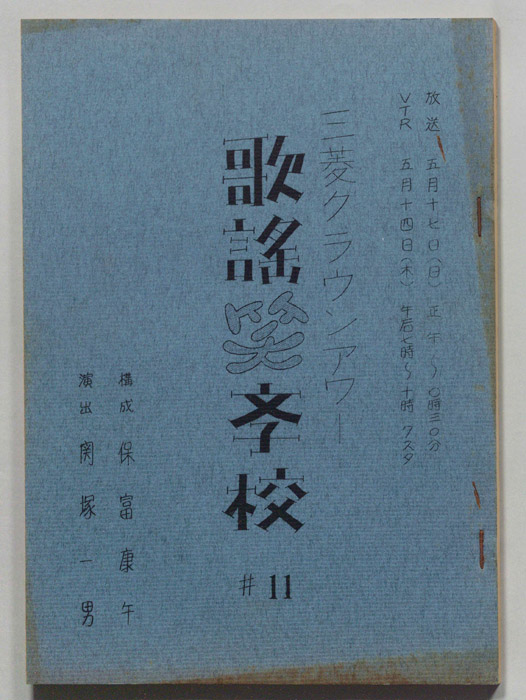 放送 五月十七日(日) 正午〜0時三0分
VTR 五月十四日(木) 午后七時〜十時 クスタ
三菱クラウンアワー
歌謡笑学校
#11
構成 保富康午
演出 関塚一男